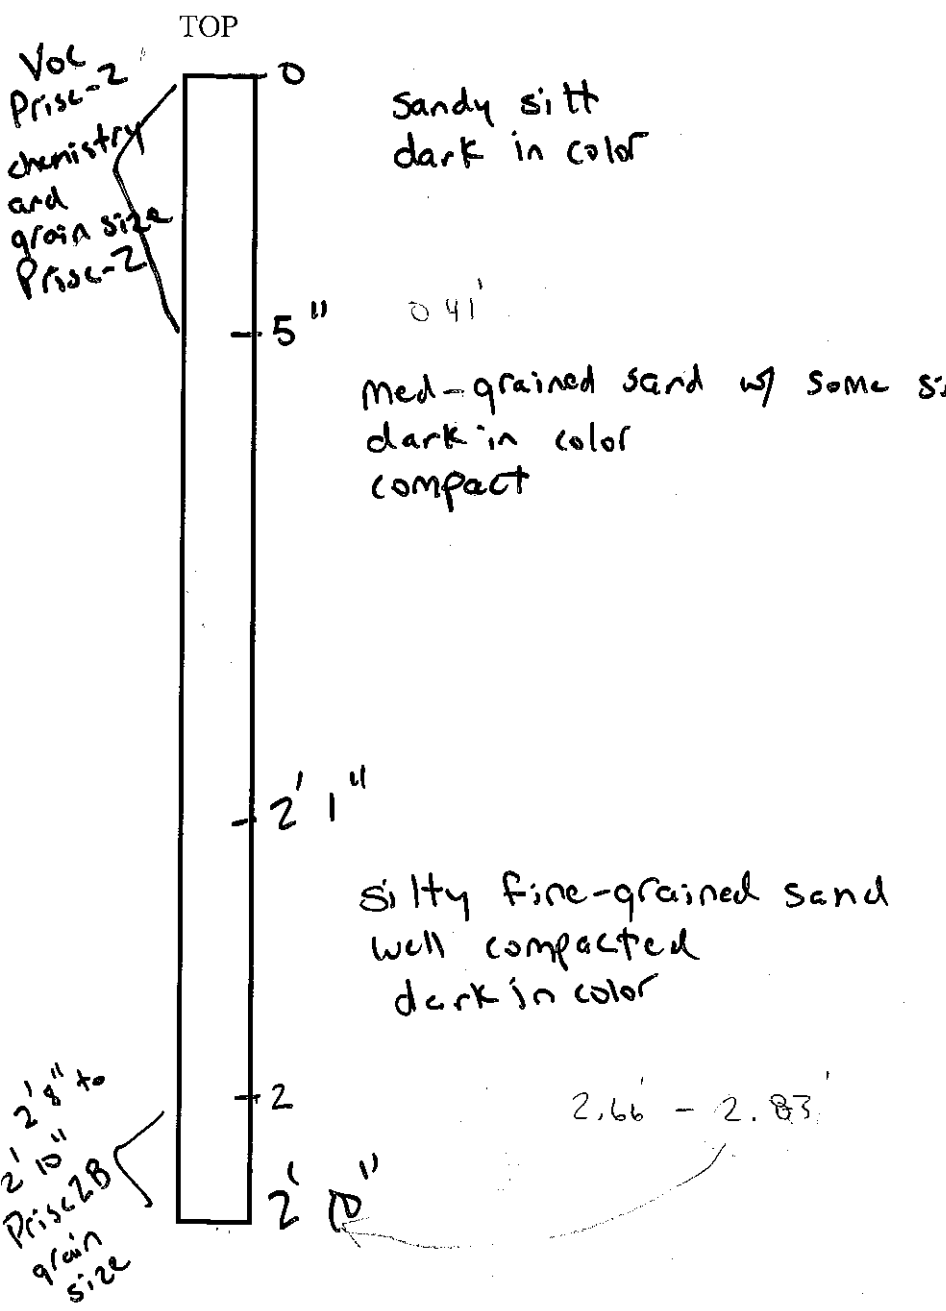 TOP
VOC
Prisc-2
chemistry
and
grain size
Prisc-2
0
Sandy silt
dark in color
5"
0.41'
Med-grained sand w/ some
dark in color
compact
2' 1"
silty fine-grained sand
well compacted
dark in color
2
2.66' - 2.83'
2' 10"
2' 8" to
2' 10"
Prisc2B
grain
size